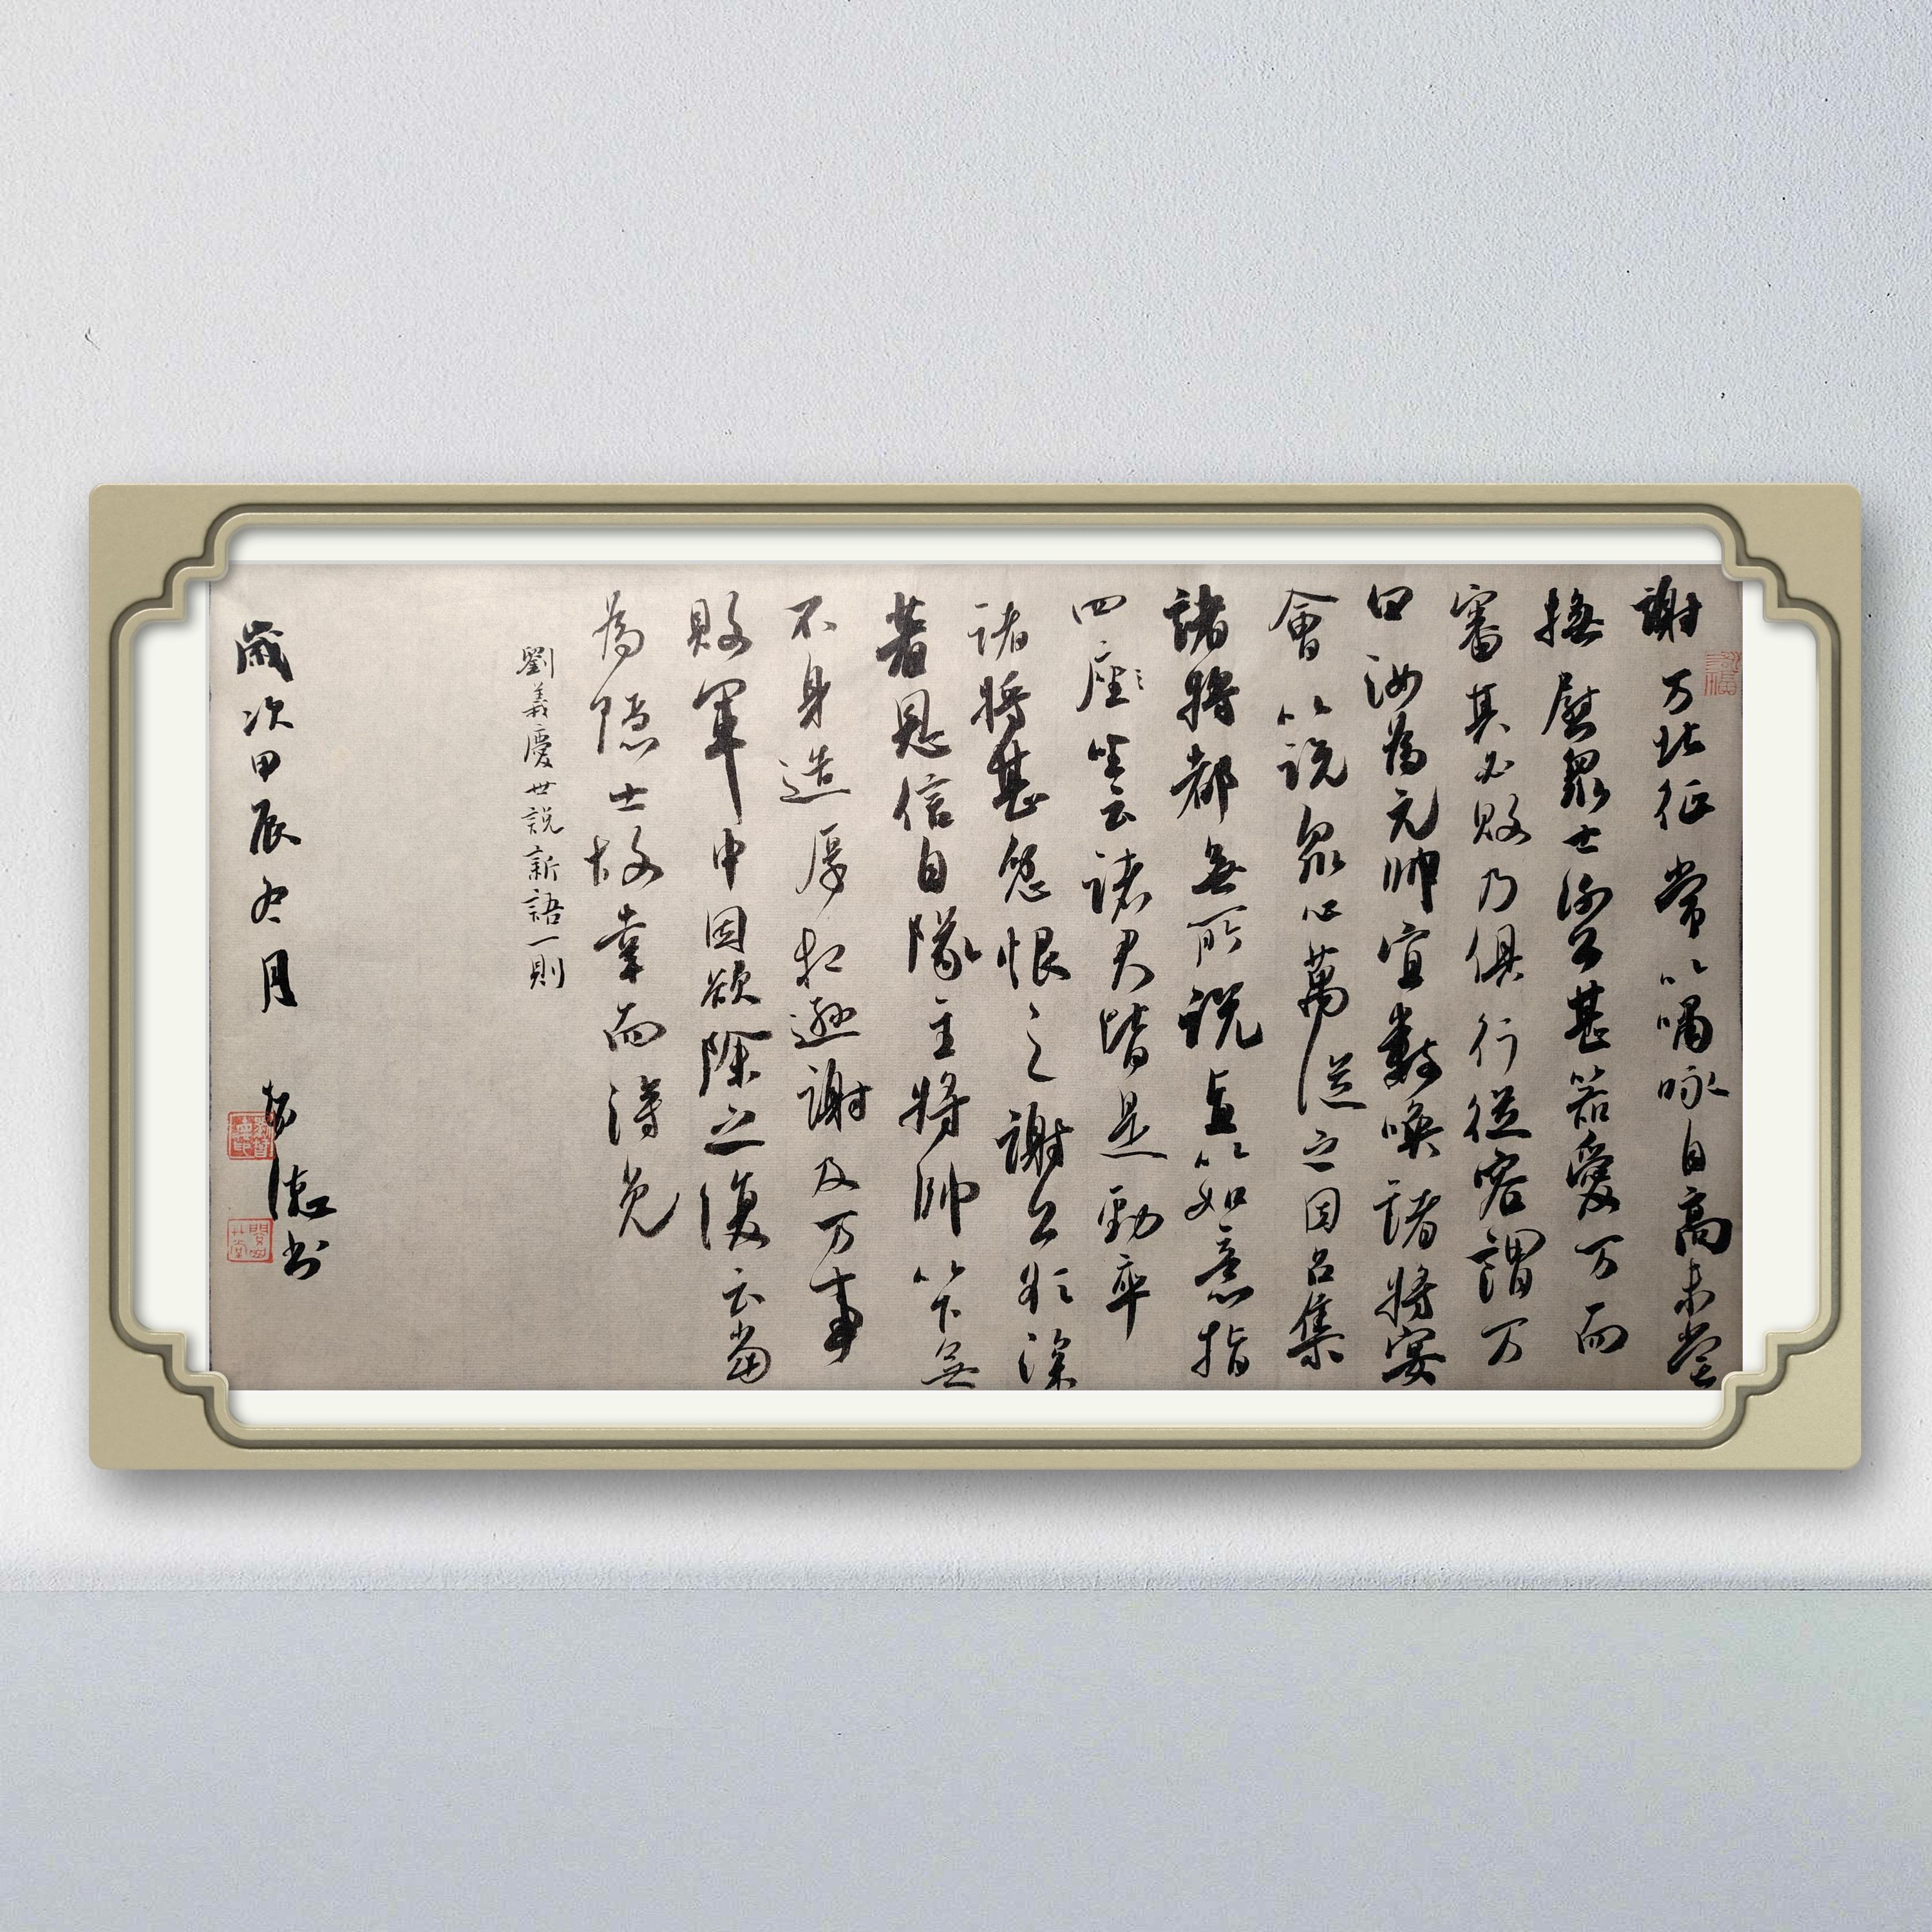 謝万北征常以嘯咏自高未嘗
撫慰眾士謝公甚器愛万而
審其必敗乃俱行從容謂万
曰汝為元帥宜數喚諸將宴
會以説眾心萬從之因召集
諸將都無所説直以如意指
四座坐云諸君皆是勁卒
諸將甚忿恨之謝公欲深
著恩信自隊主將帥以下無
不身造厚相遜謝及万事
敗軍中因欲除之復云當
為隱士故幸而得免
劉義慶世説新語一則
歲次甲辰冬月 書